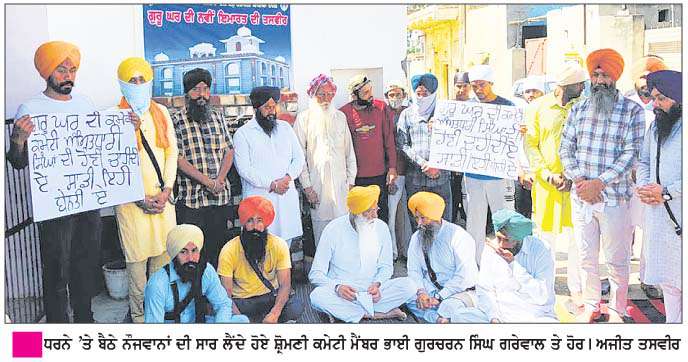 ਗੁਰੂ ਘਰ ਦੀ ਨਵੀਂ ਇਮਾਰਤ ਦੀ ਤਸਵੀਰ
ਗੁਰੂ ਘਰ ਦੀ ਕਮੇਟੀ
ਅੰਮ੍ਰਿਤਧਾਰੀ
ਸਿੰਘਾਂ ਦੀ ਹੋਣੀ ਚਾਹੀਦੀ
ਏ ਸਾਡੀ ਇਹੀ
ਬੇਨਤੀ ਏ
ਗੁਰੂ ਘਰ ਦੀ ਕਮੇਟੀ
ਅੰਮ੍ਰਿਤਧਾਰੀ ਸਿੰਘਾਂ ਦੀ
ਹੋਣੀ ਚਾਹੀਦੀ ਏ
ਸਾਡੀ ਇਹੀ ਬੇਨਤੀ ਏ
ਧਰਨੇ 'ਤੇ ਬੈਠੇ ਨੌਜਵਾਨਾਂ ਦੀ ਸਾਰ ਲੈਂਦੇ ਹੋਏ ਸ਼੍ਰੋਮਣੀ ਕਮੇਟੀ ਮੈਂਬਰ ਭਾਈ ਗੁਰਚਰਨ ਸਿੰਘ ਗਰੇਵਾਲ ਤੇ ਹੋਰ। ਅਜੀਤ ਤਸਵੀਰ